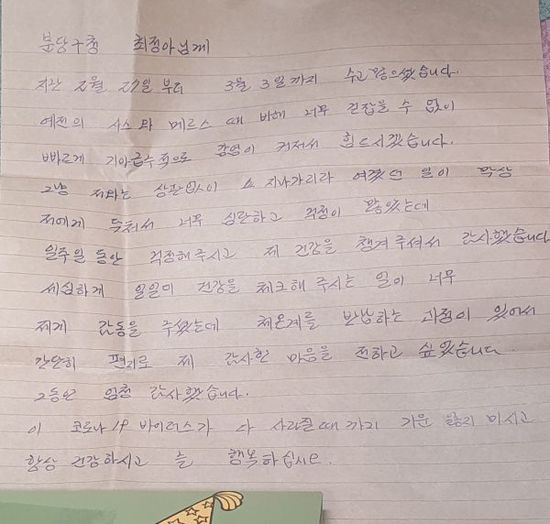 분당구청 최정아님께
지난 2월 27일부터 3월 3일까지 수고 많으셨습니다.
예전의 사스나 메르스 때 비해 너무 걷잡을 수 없이
빠르게 기하급수적으로 감염이 커져서 힘드시겠습니다.
그냥 저와는 상관없이 쇼 지나가리라 여겼던 일이 막상
저에게 닥쳐서 너무 심란하고 걱정이 많았는데
일주일 동안 걱정해주시고 제 건강을 챙겨주셔서 감사했습니다
세심하게 일일이 건강을 체크해 주시는 일이 너무
제게 감동을 주셨는데 체온계를 반납하는 과정이 있어서
간단히 편지로 제 감사한 마음을 전하고 싶었습니다.
그동안 엄청 감사했습니다.
이 코로나19 바이러스가 다 사라질때까지 기운 잃지 마시고
항상 건강하시고 늘 행복하십시요.